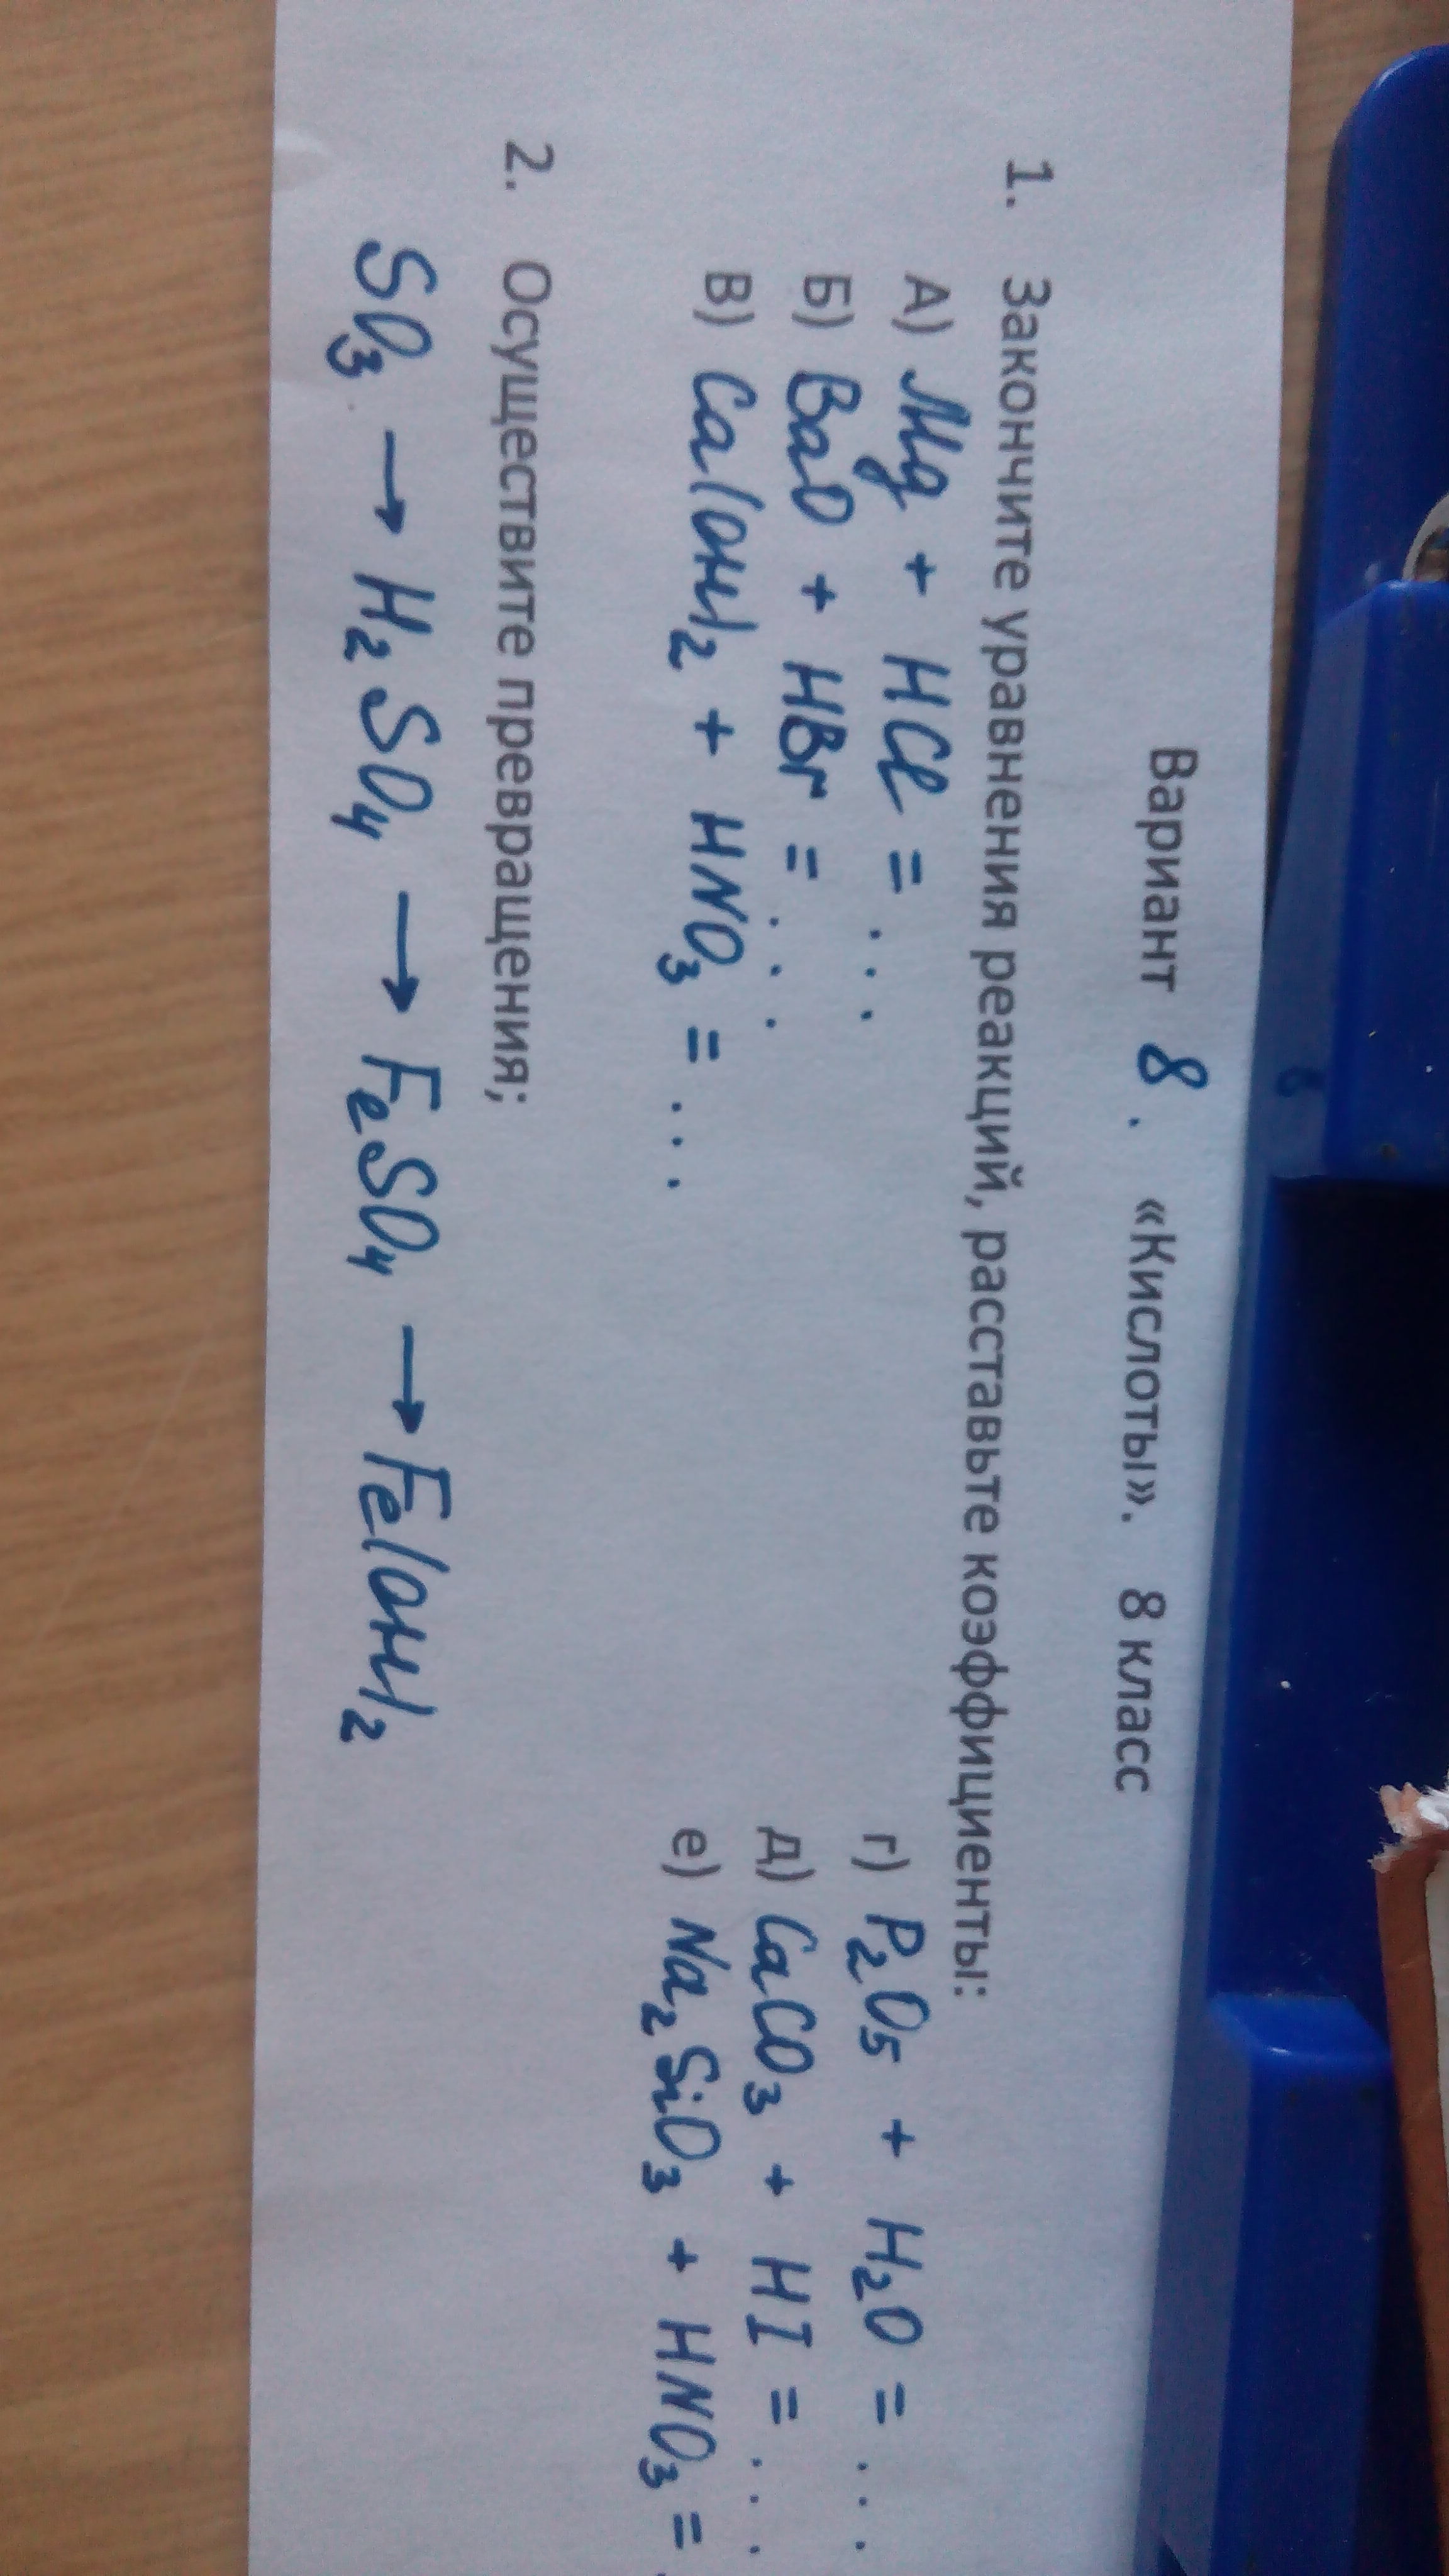 Вариант 8. «Кислоты». 8 класс
1. Закончите уравнения реакций, расставьте коэффициенты:
А) Mg + HCl = ... г) P₂O₅ + H₂O = ...
Б) BaO + HBr = ... д) CaCO₃ + HI = ...
В) Ca(OH)₂ + HNO₃ = ... е) Na₂SiO₃ + HNO₃ =
2. Осуществите превращения;
SO₃ → H₂SO₄ → FeSO₄ → Fe(OH)₂